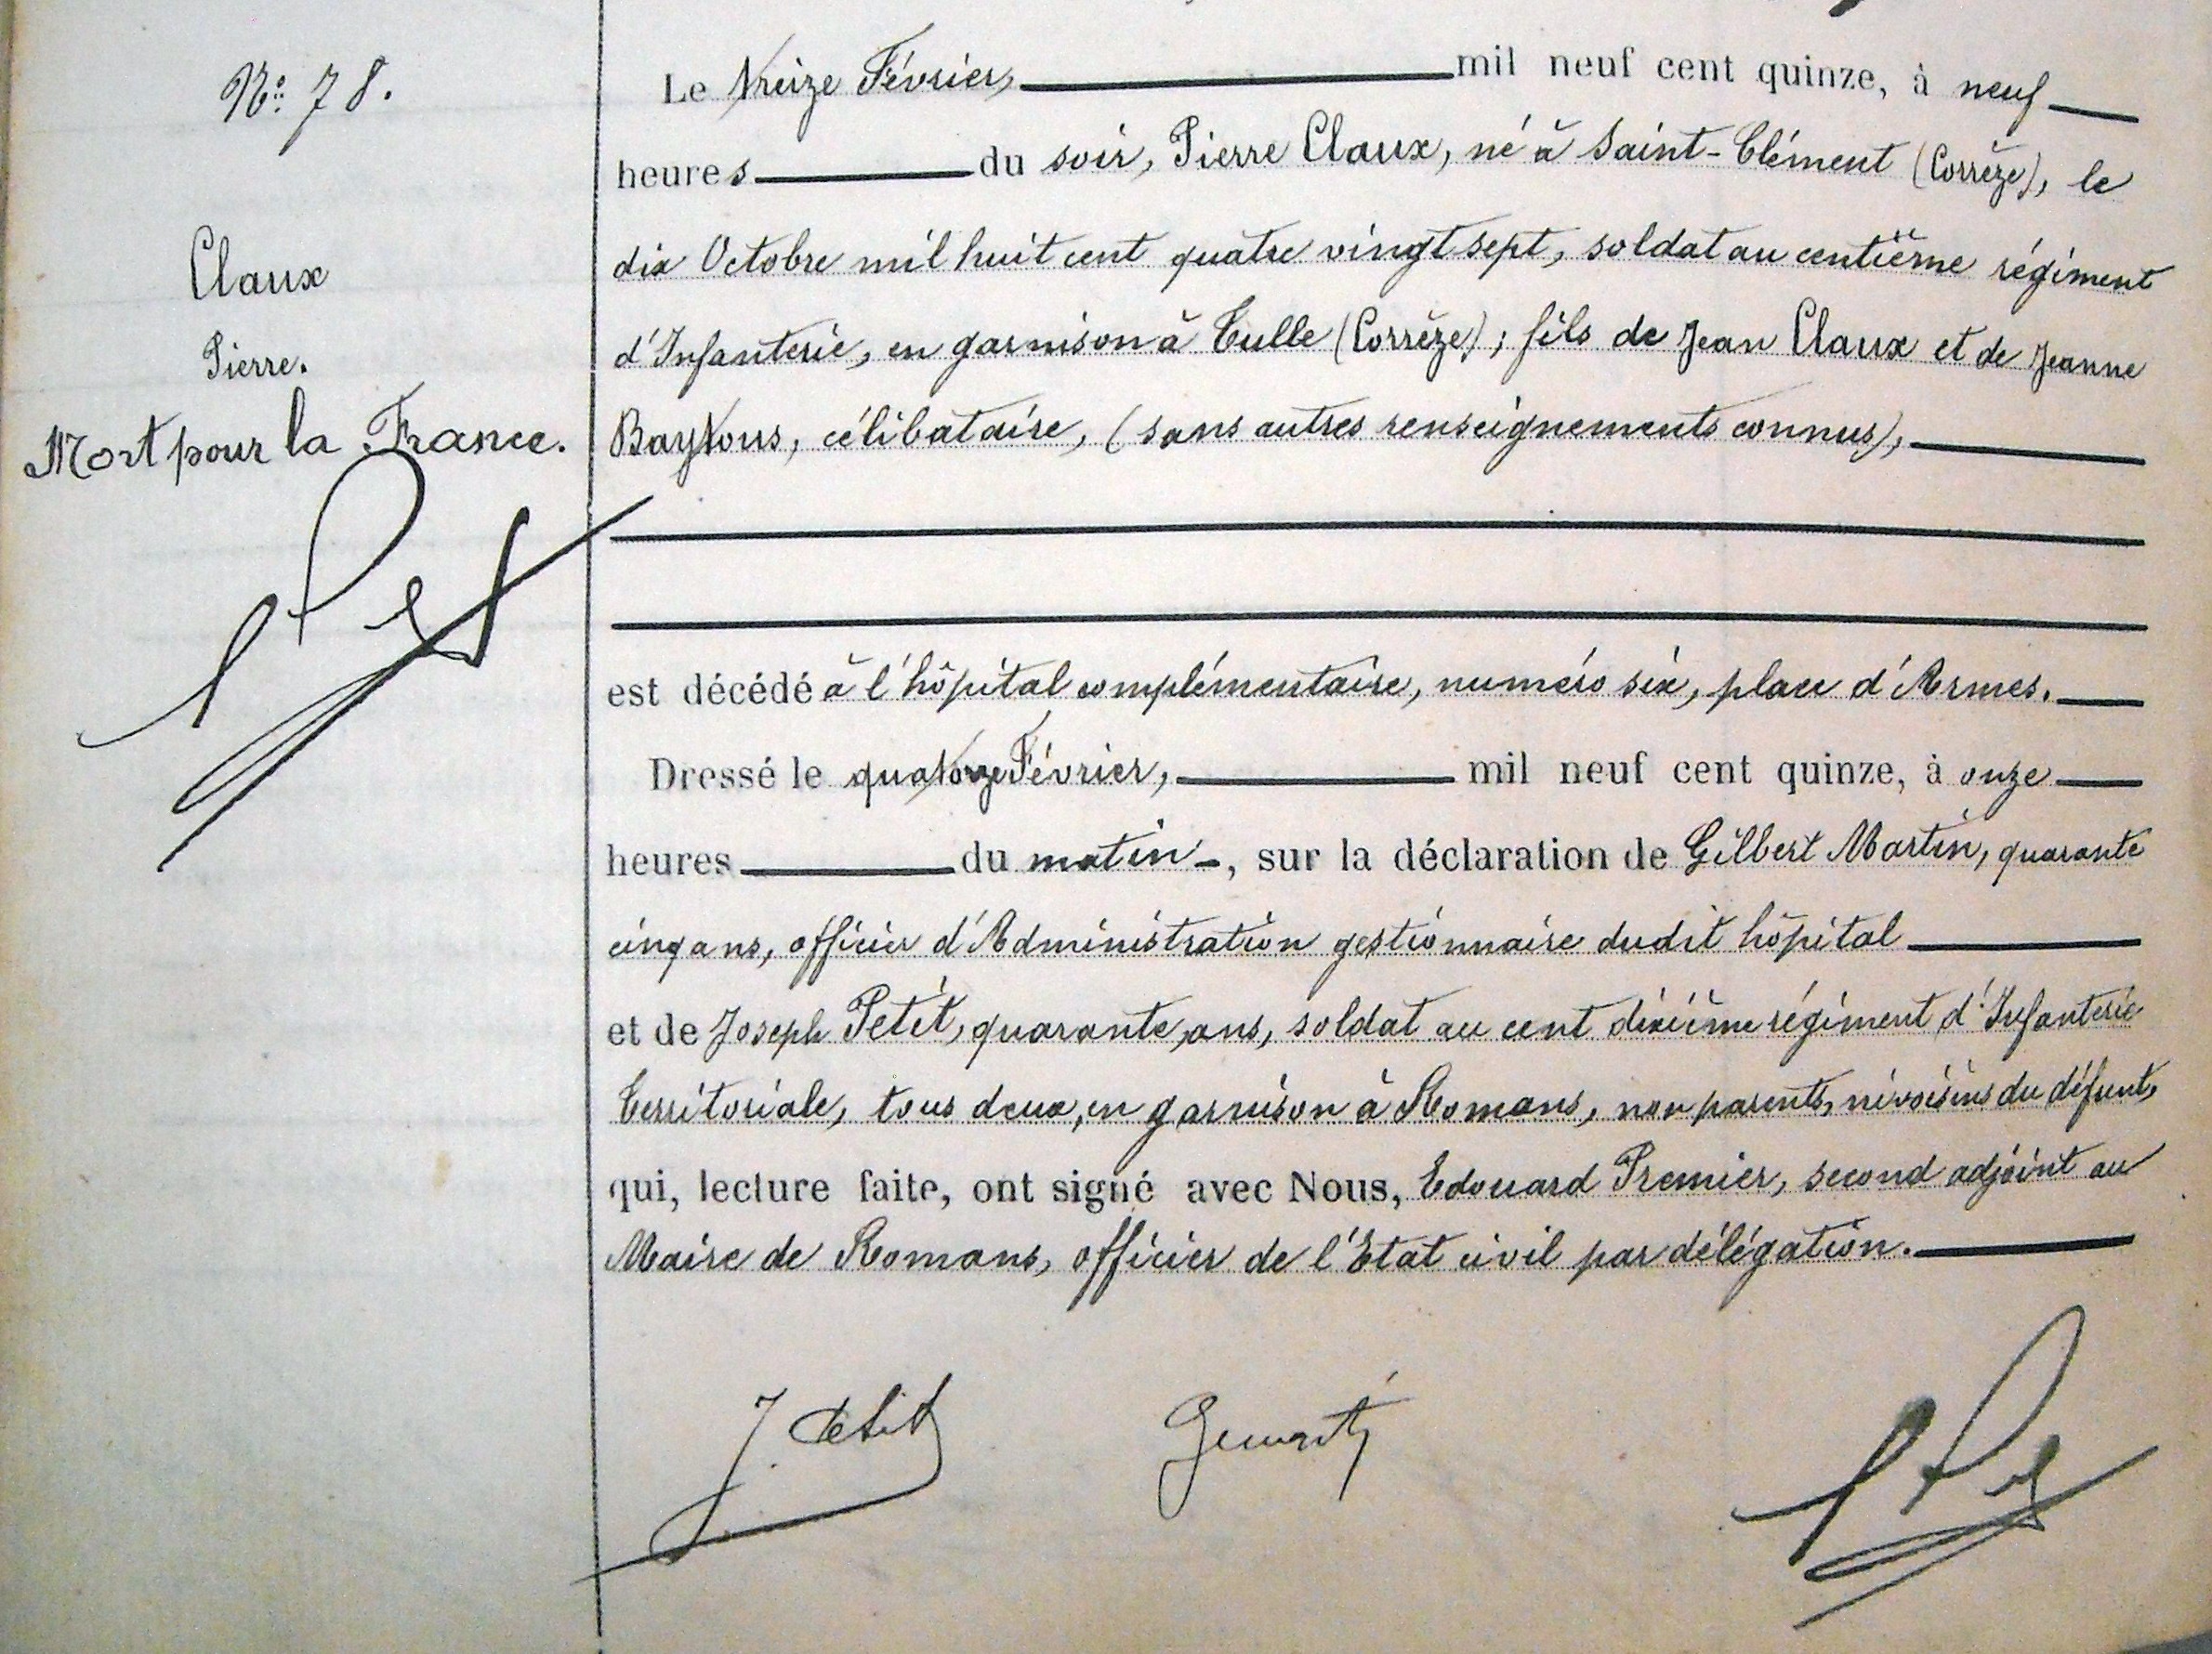 N° 78.
Claux
Pierre.
Mort pour la France.
Le treize Février, mil neuf cent quinze, à neuf
heures du soir, Pierre Claux, né à Saint-Clément (Corrèze), le
dix Octobre mil huit cent quatre vingt sept, soldat au centième régiment
d'Infanterie, en garnison à Tulle (Corrèze); fils de Jean Claux et de Jeanne
Baytous, célibataire, (sans autres renseignements connus),
est décédé à l'hôpital complémentaire, numéro six, place d'Armes.
Dressé le quatorze Février, mil neuf cent quinze, à onze
heures du matin, sur la déclaration de Gilbert Martin, quarante
cinq ans, officier d'Administration gestionnaire dudit hôpital
et de Joseph Petit, quarante ans, soldat au cent dixième régiment d'Infanterie
Territoriale, tous deux, en garnison à Romans, non parents, ni voisins du défunt,
qui, lecture faite, ont signé avec Nous, Edouard Premier, second adjoint au
Maire de Romans, officier de l'Etat civil par délégation.
J. Petit